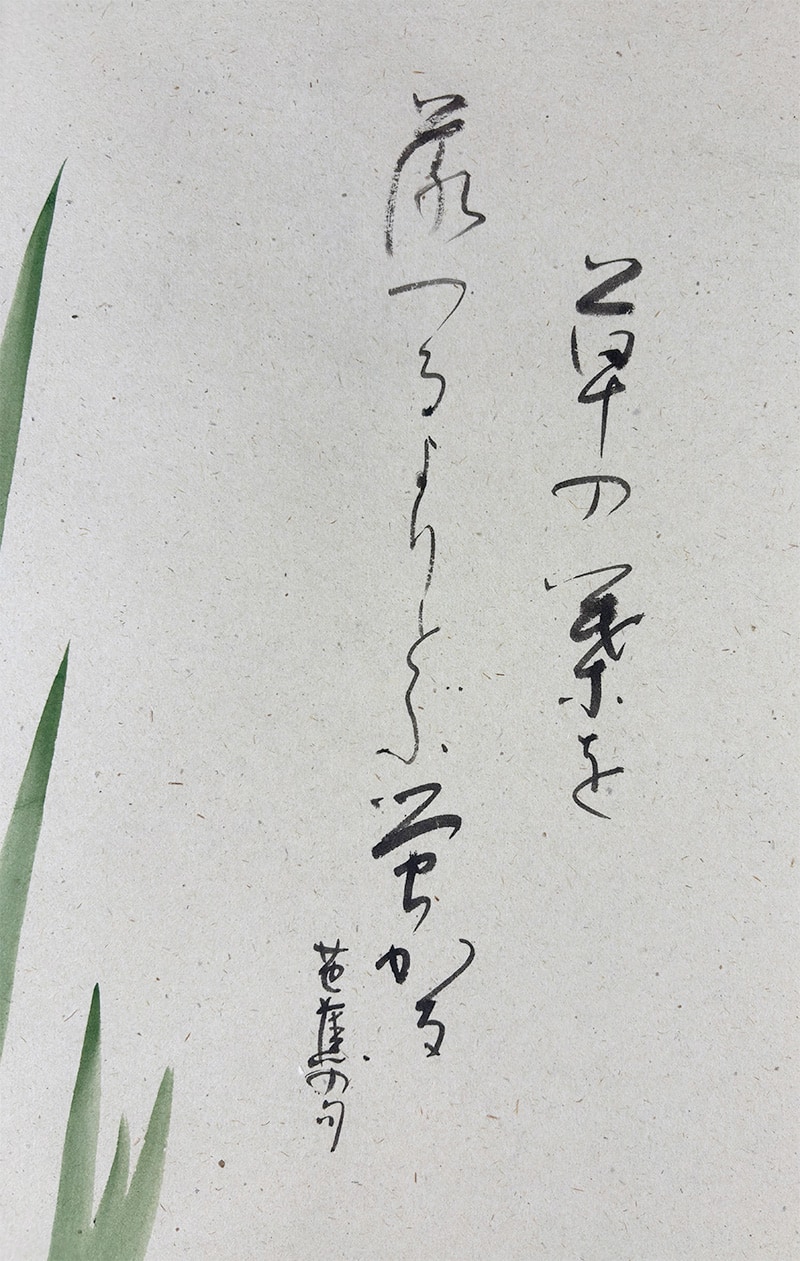 草の葉を
落つるよりとぶ蛍かな
芭蕉の句